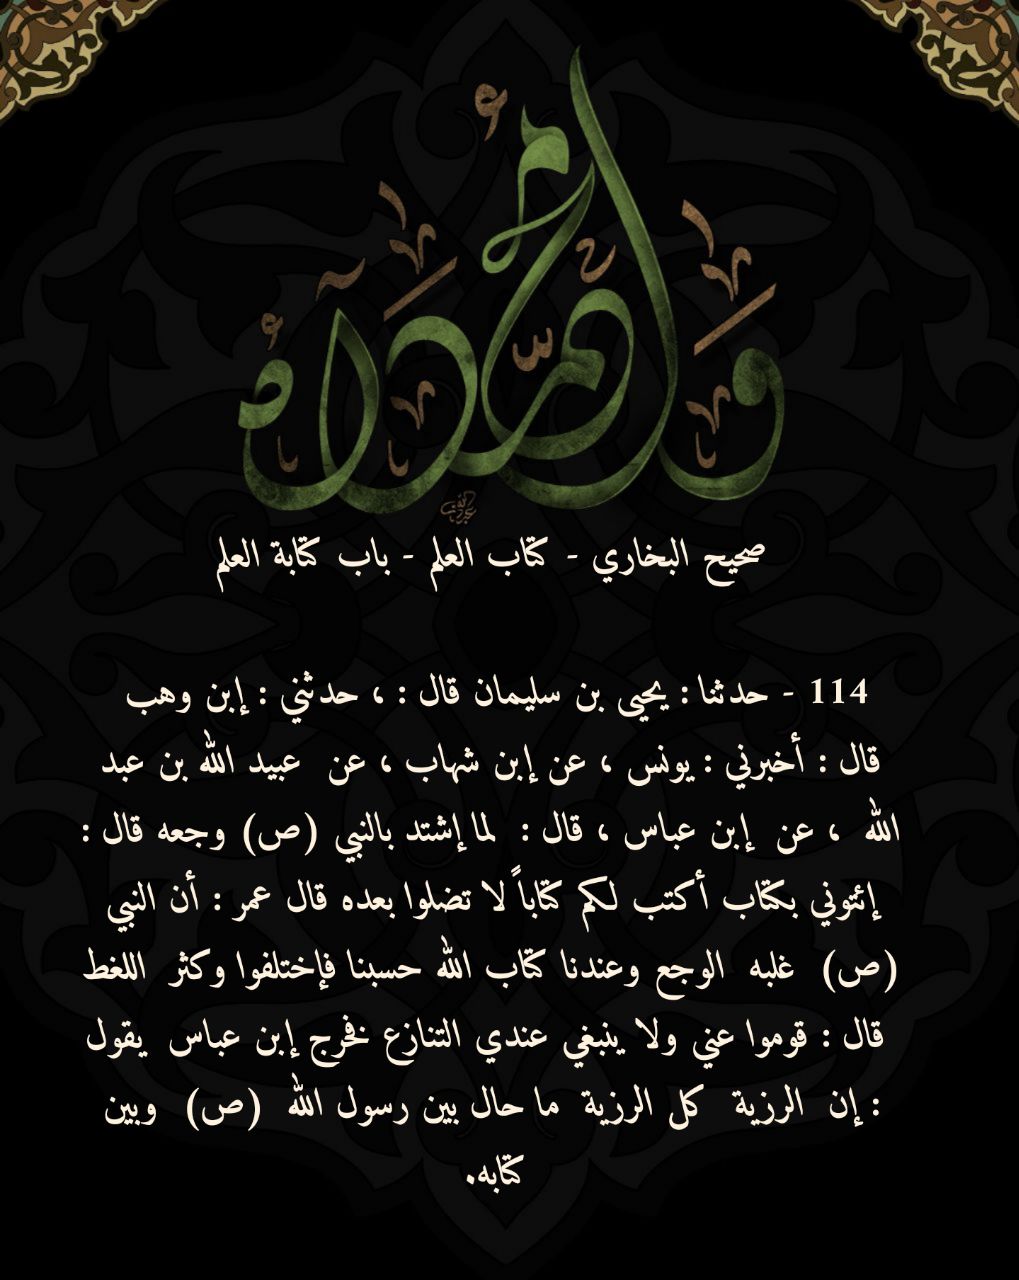 وَا مُحَمَّدَاهُ
صحيح البخاري - كتاب العلم - باب كتابة العلم
114 - حدثنا : يحيى بن سليمان قال : ، حدثني : إبن وهب
قال : أخبرني : يونس ، عن إبن شهاب ، عن عبيد الله بن عبد
الله ، عن إبن عباس ، قال : لما إشتد بالنبي (ص) وجعه قال :
إئتوني بكتاب أكتب لكم كتاباً لا تضلوا بعده قال عمر : أن النبي
(ص) غلبه الوجع وعندنا كتاب الله حسبنا فإختلفوا وكثر اللغط
قال : قوموا عني ولا ينبغي عندي التنازع فخرج إبن عباس يقول
: إن الرزية كل الرزية ما حال بين رسول الله (ص) وبين
كتابه.